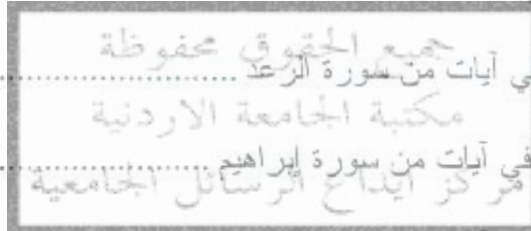 جميع الحقوق محفوظة
في آيات من سورة الرعد ....................
مكتبة الجامعة الاردنية
في آيات من سورة إبراهيم ....................
مركز ايداع الرسائل الجامعية